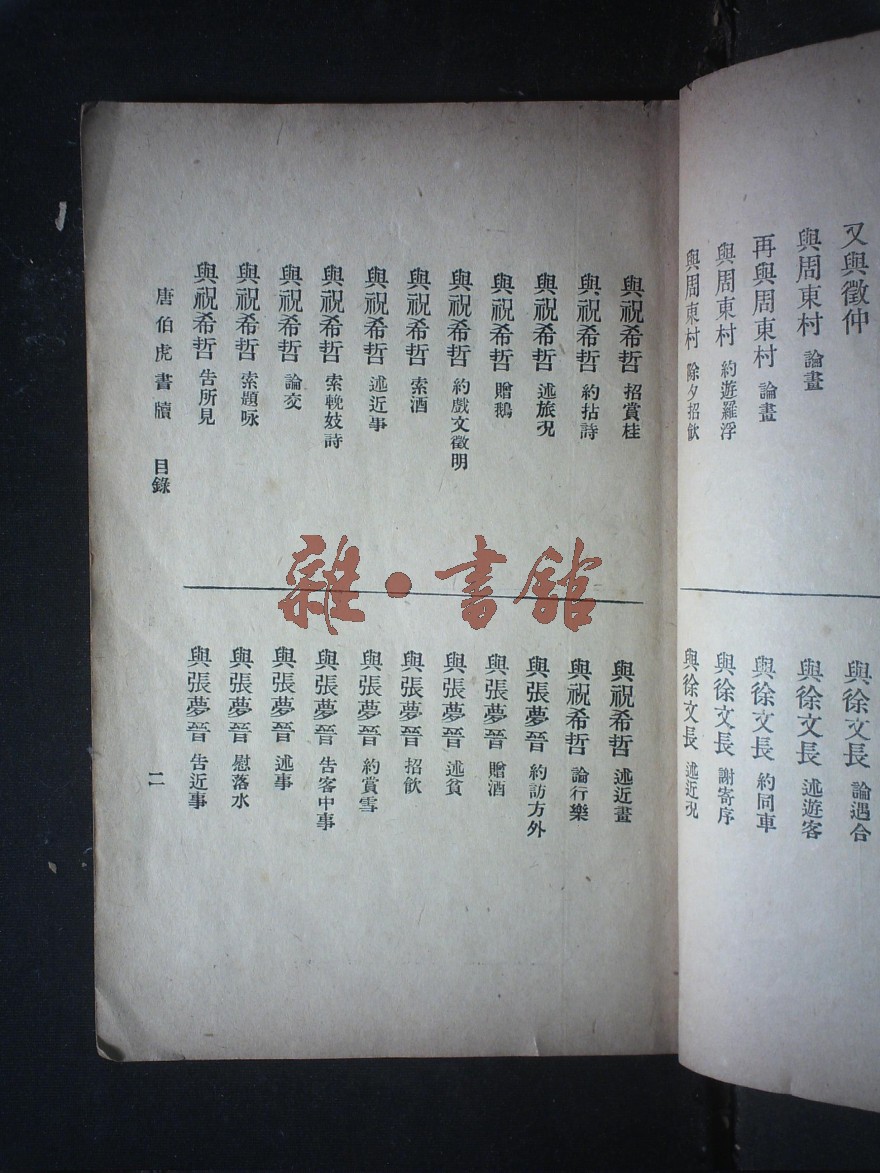 又與徵仲
與周東村 論畫
再與周東村 論畫
與周東村 約遊羅浮
與周東村 除夕招飲
與徐文長 論遇合
與徐文長 述遊客
與徐文長 約同車
與徐文長 謝寄序
與徐文長 述近況
與祝希哲 招賞桂
與祝希哲 約拈詩
與祝希哲 述旅况
與祝希哲 贈鵝
與祝希哲 約戲文徵明
與祝希哲 索酒
與祝希哲 述近事
與祝希哲 索輓妓詩
與祝希哲 論交
與祝希哲 索題咏
與祝希哲 告所見
與祝希哲 述近畫
與祝希哲 論行樂
與張夢晉 約訪方外
與張夢晉 贈酒
與張夢晉 述貧
與張夢晉 招飲
與張夢晉 約賞雪
與張夢晉 告客中事
與張夢晉 述事
與張夢晉 慰落水
與張夢晉 告近事
唐伯虎書牘 目錄 二
雜·書館